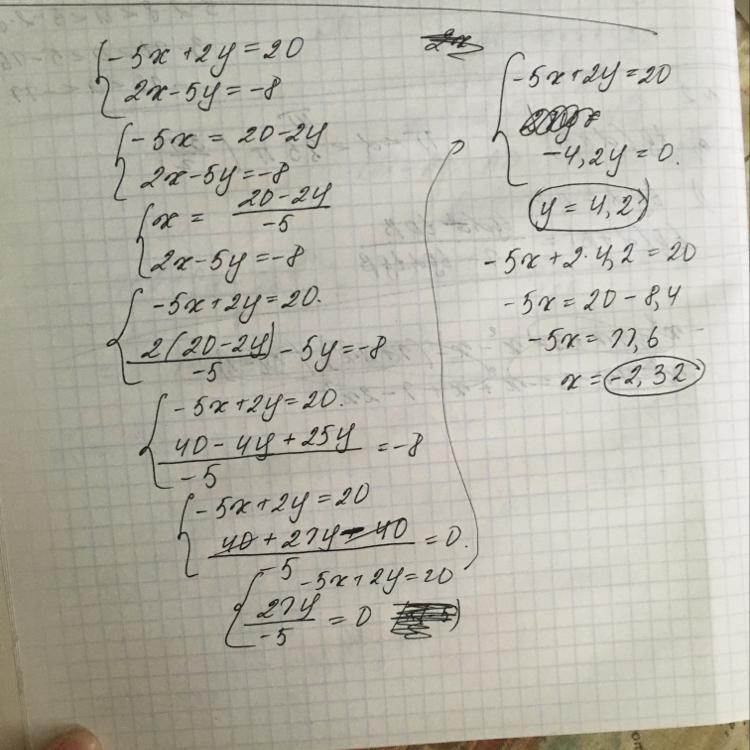 -5x + 2y = 20
2x - 5y = -8
-5x = 20 - 2y
2x - 5y = -8
x = (20 - 2y)/-5
2x - 5y = -8
-5x + 2y = 20.
2(20 - 2y)/-5 - 5y = -8
-5x + 2y = 20.
(40 - 4y + 25y)/-5 = -8
-5x + 2y = 20
(40 + 21y - 40)/-5 = 0.
-5x + 2y = 20
21y/-5 = 0
-5x + 2y = 20
-4,2y = 0.
y = 4,2
-5x + 2·4,2 = 20
-5x = 20 - 8,4
-5x = 11,6
x = -2,32